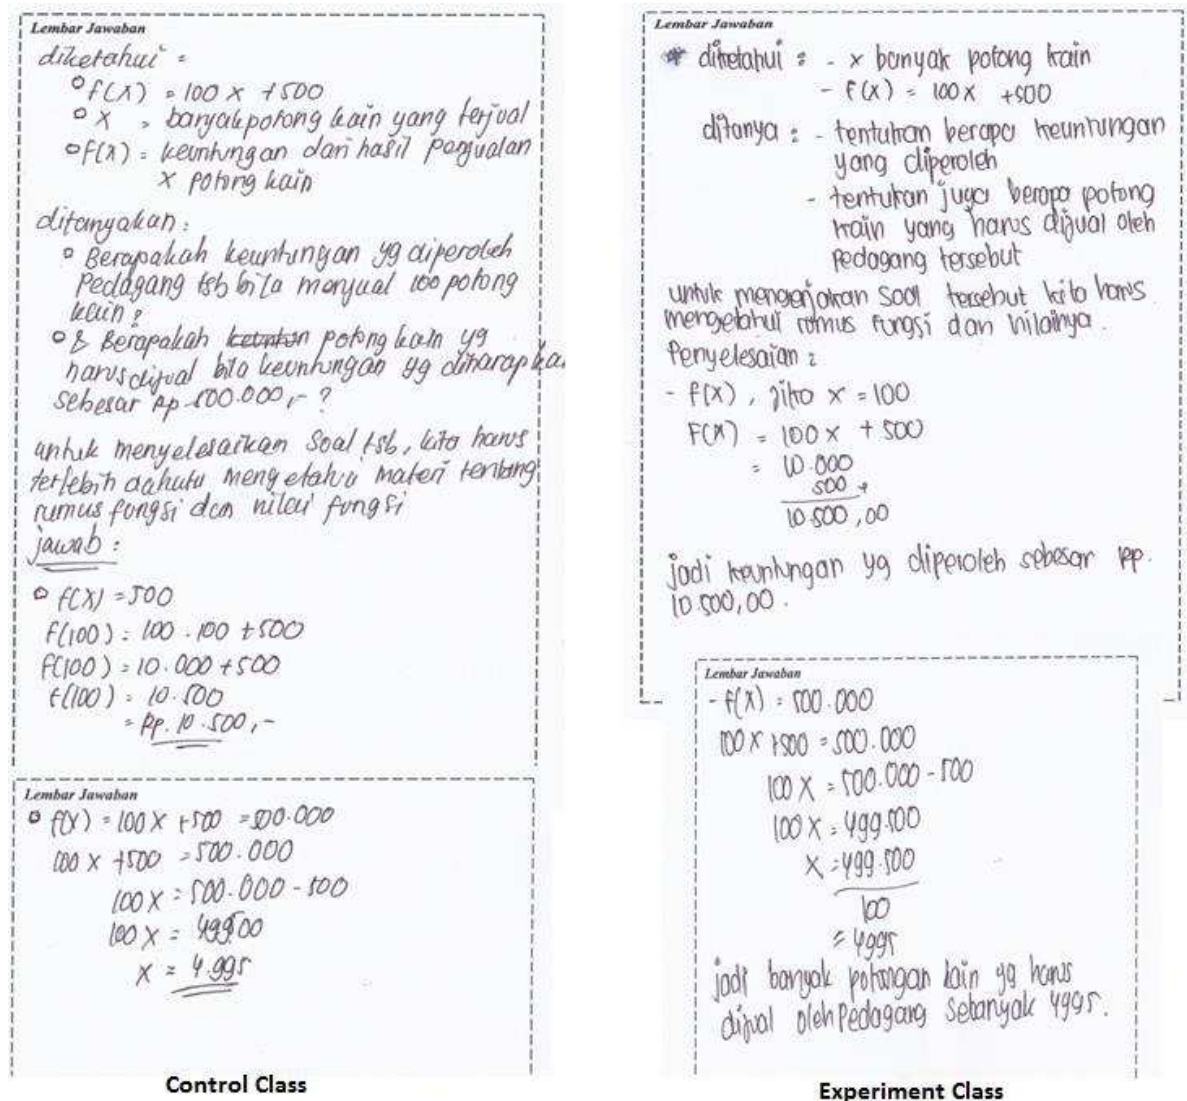 Lembar Jawaban
diketahui =
f(x) = 100 x + 500
x = banyak potong kain yang terjual
f(x) = keuntungan dari hasil penjualan
x potong kain
ditanyakan :
Berapakah keuntungan yg diperoleh
Pedagang tsb bila menjual 100 potong
kain ?
Berapakah potong kain yg
harus dijual bila keuntungan yg diharapkan
sebesar Rp 500.000,- ?
untuk menyelesaikan Soal tsb, kita harus
terlebih dahulu mengetahui materi tentang
rumus fungsi dan nilai fungsi
jawab :
f(x) = 500
f(100) = 100 . 100 + 500
f(100) = 10.000 + 500
f(100) = 10.500
= Rp. 10.500,-
Lembar Jawaban
f(x) = 100 x + 500 = 500.000
100 x + 500 = 500.000
100 x = 500.000 - 500
100 x = 499500
x = 4.995
Control Class
Lembar Jawaban
* diketahui : - x banyak potong kain
- f(x) = 100x + 500
ditanya : - tentukan berapa keuntungan
yang diperoleh
- tentukan juga berapa potong
kain yang harus dijual oleh
Pedagang tersebut
untuk mengerjakan Soal tersebut kita harus
mengetahui rumus fungsi dan nilainya.
Penyelesaian :
- f(x), jika x = 100
F(x) = 100 x + 500
= 10.000
500 +
10.500,00
jadi keuntungan yg diperoleh sebesar Rp.
10.500,00.
Lembar Jawaban
- f(x) = 500.000
100 x + 500 = 500.000
100 x = 500.000 - 500
100 x = 499.500
x = 499.500
100
= 4995
jadi banyak potongan kain yg harus
dijual oleh Pedagang Sebanyak 4995.
Experiment Class